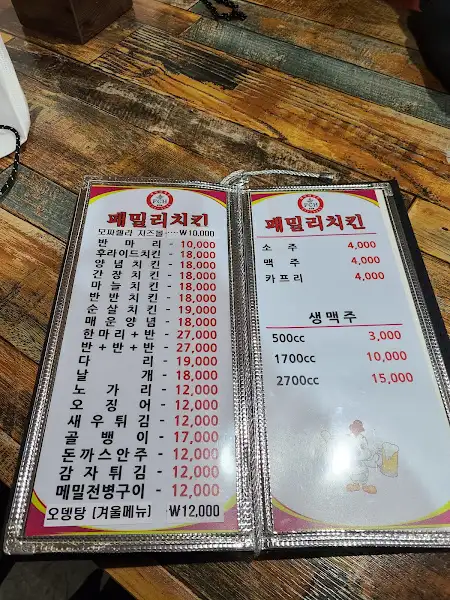 FCH
패밀리치킨
모짜렐라 치즈볼 ····· ₩10,000
반 마 리 - 10,000
후라이드치킨 - 18,000
양념치킨 - 18,000
간장치킨 - 18,000
마늘치킨 - 18,000
반반치킨 - 18,000
순살치킨 - 19,000
매운양념 - 18,000
한마리+반 - 27,000
반+반+반 - 27,000
다 리 - 19,000
날 개 - 18,000
노 가 리 - 12,000
오 징 어 - 12,000
새우튀김 - 12,000
골 뱅 이 - 17,000
돈까스안주 - 12,000
감자튀김 - 12,000
메밀전병구이 - 12,000
오뎅탕 (겨울메뉴) ₩12,000
FCH
패밀리치킨
소 주 4,000
맥 주 4,000
카프리 4,000
생맥주
500cc 3,000
1700cc 10,000
2700cc 15,000